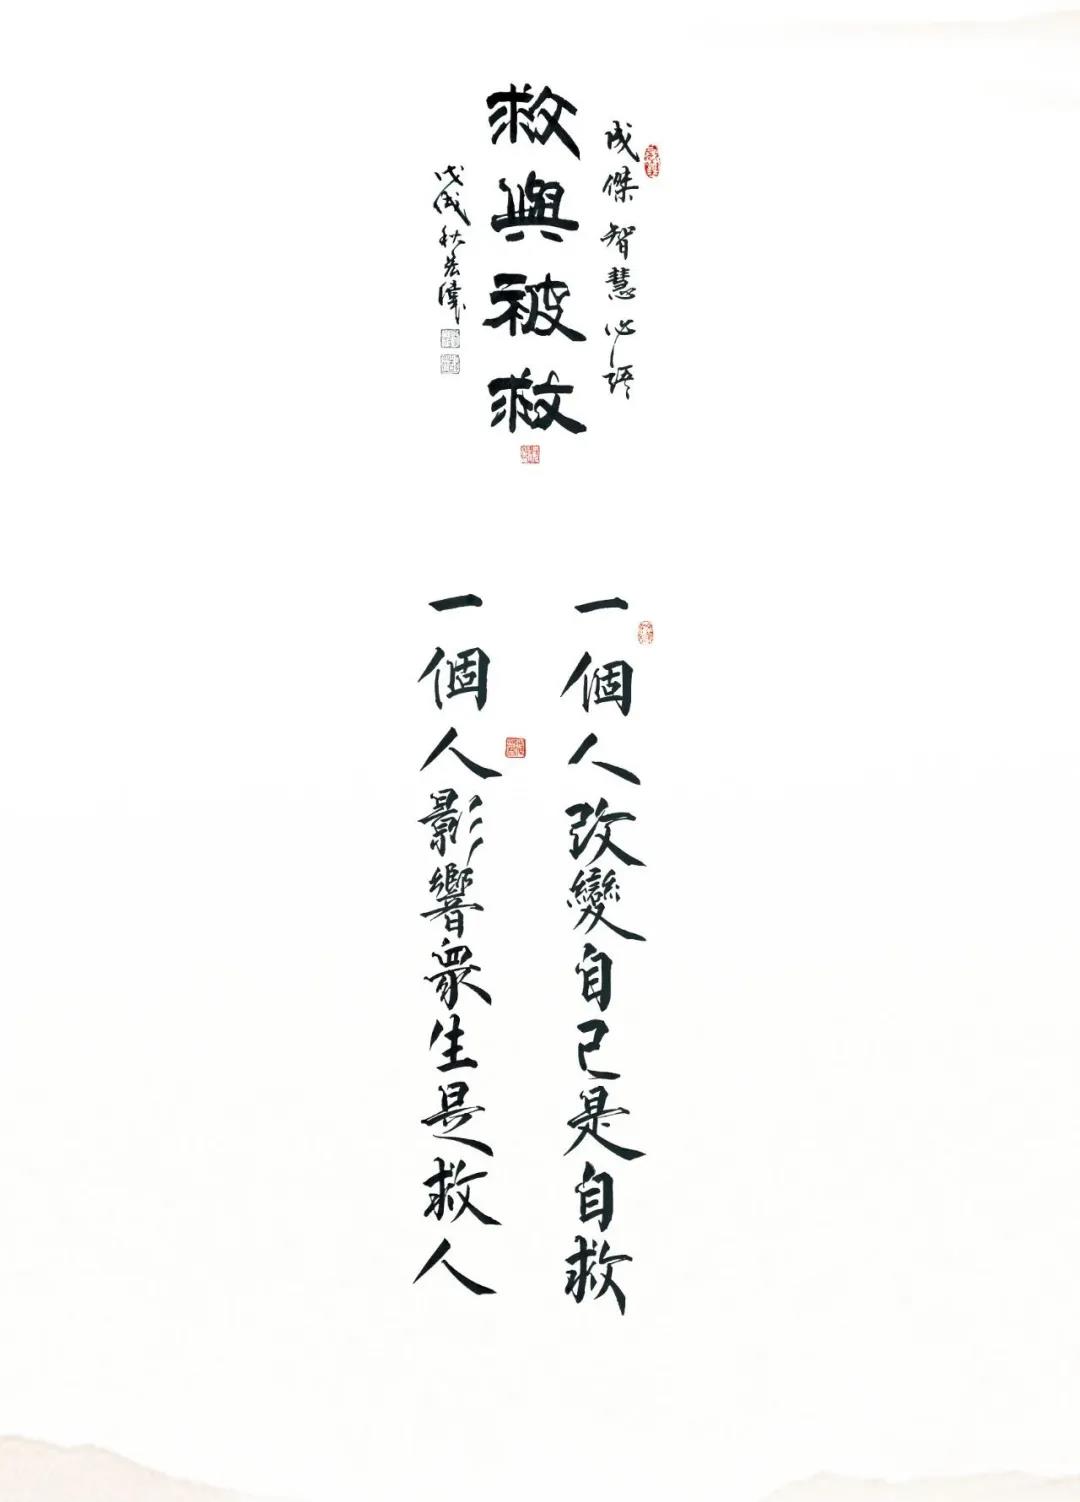 成傑智慧心語
救與被救
戊戌秋
一個人改變自己是自救
一個人影響眾生是救人